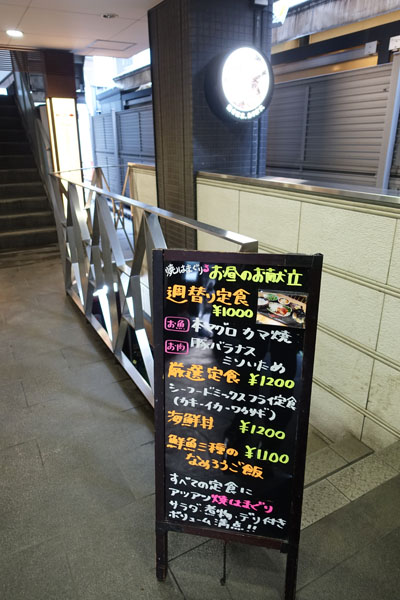 焼はまぐり お昼のお献立
週替り定食
¥1000
お魚 本マグロ カマ焼
お肉 豚バラナス
ミソいため
厳選定食 ¥1200
シーフードミックスフライ定食
(カキ・イカ・ワカサギ)
海鮮丼 ¥1200
鮮魚三種の ¥1100
なめろうご飯
すべての定食に
アツアツ焼はまぐり
サラダ・煮物・デリ付き
ボリューム満点!!